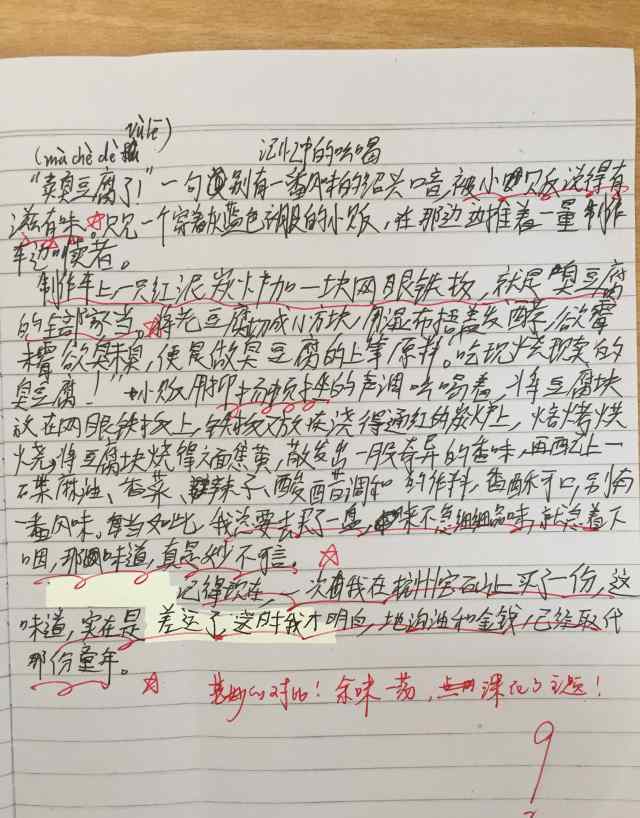 yù lè)
(mǎ chē dè
记忆中的吆喝
"卖臭豆腐了!"一句别有一番风味的绍兴口音,被小贩说得有
滋有味。只见一个穿着灰蓝色调服的小贩,在那边推着一量制作
车边读者。
制作车上一只红泥炭炉加一块网眼铁板,就是臭豆腐
的全部家当。将老豆腐切成小方块,用湿布捂着发酵,欲霉
未霉欲臭未臭,便是做臭豆腐的上等原料。"哈现炸现卖的
臭豆腐!"小贩用抑扬顿挫的声调吆喝着,将豆腐块
放在网眼铁板上,铁板又放在烧得通红的炭炉上,焙烤烘
烧,将豆腐块烧得之面焦黄,散发出一股奇异的香味,再洒上一
碟麻油、香菜、辣子、酸醋调和的作料,香酥可口,别有
一番风味。每当如此,我总要去买一盘,来不急细细品味,就急着下
咽,那味道,真是妙不可言。
记得现在,一次我在杭州宝石山上买了一份,这
味道,实在是差远了。这时我才明白,地沟油和金钱,已经取代
那份童年。
美妙的对比!余味一荡,深化了主题!
9